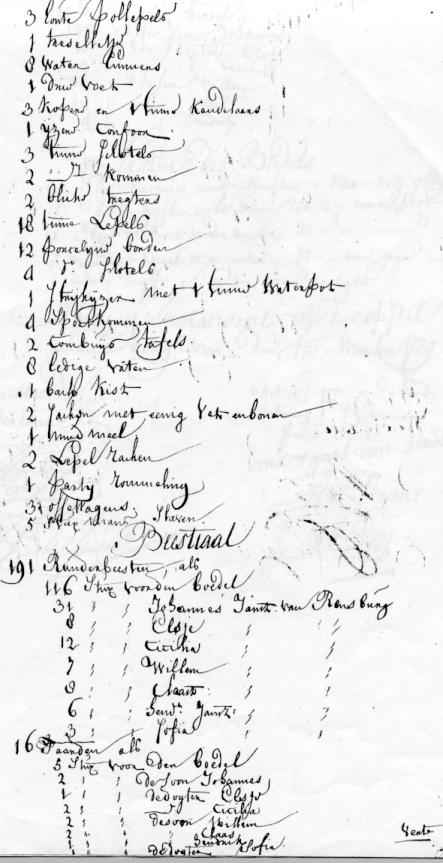 3 houte pollepels
1
8 Water Emmens
1 Drie Voet
3 kopere en 1 tinne kandelaars
1 yzere Confoor
3 tinne schotels
2 " d° kommen
2 blikke tregters
18 tinne Lepels
12 porcelyne borden
4 d° schotels
1 Strykyzer met 1 tinne Waterpot
4 Spoelkommen
2 Combuys tafels
8 ledige vaten
1 bank kist
2 zakken met eenig en bonen
1 mud meel
2 Lepel
1 Party rommeling
3 ossewagens
5 Stux Staven
Beestiaal
191 Runderbeesten, als
116 Stux voor den boedel
31 " " Johannes Jansz. van Rensburg
8 " " Elsje " "
12 " " Cicilia " "
7 " " Willem " "
8 " " Claas " "
6 " " Hend. Jansz. " "
3 " " Sofia " "
16 Paarden als
5 Stux voor Den boedel
2 " " de soon Johannes
1 " " de dogter Elsje
2 " " Cicilia
2 " " de soon Willem
" " Claas
" " Hendrik
" " de dogter Sofia